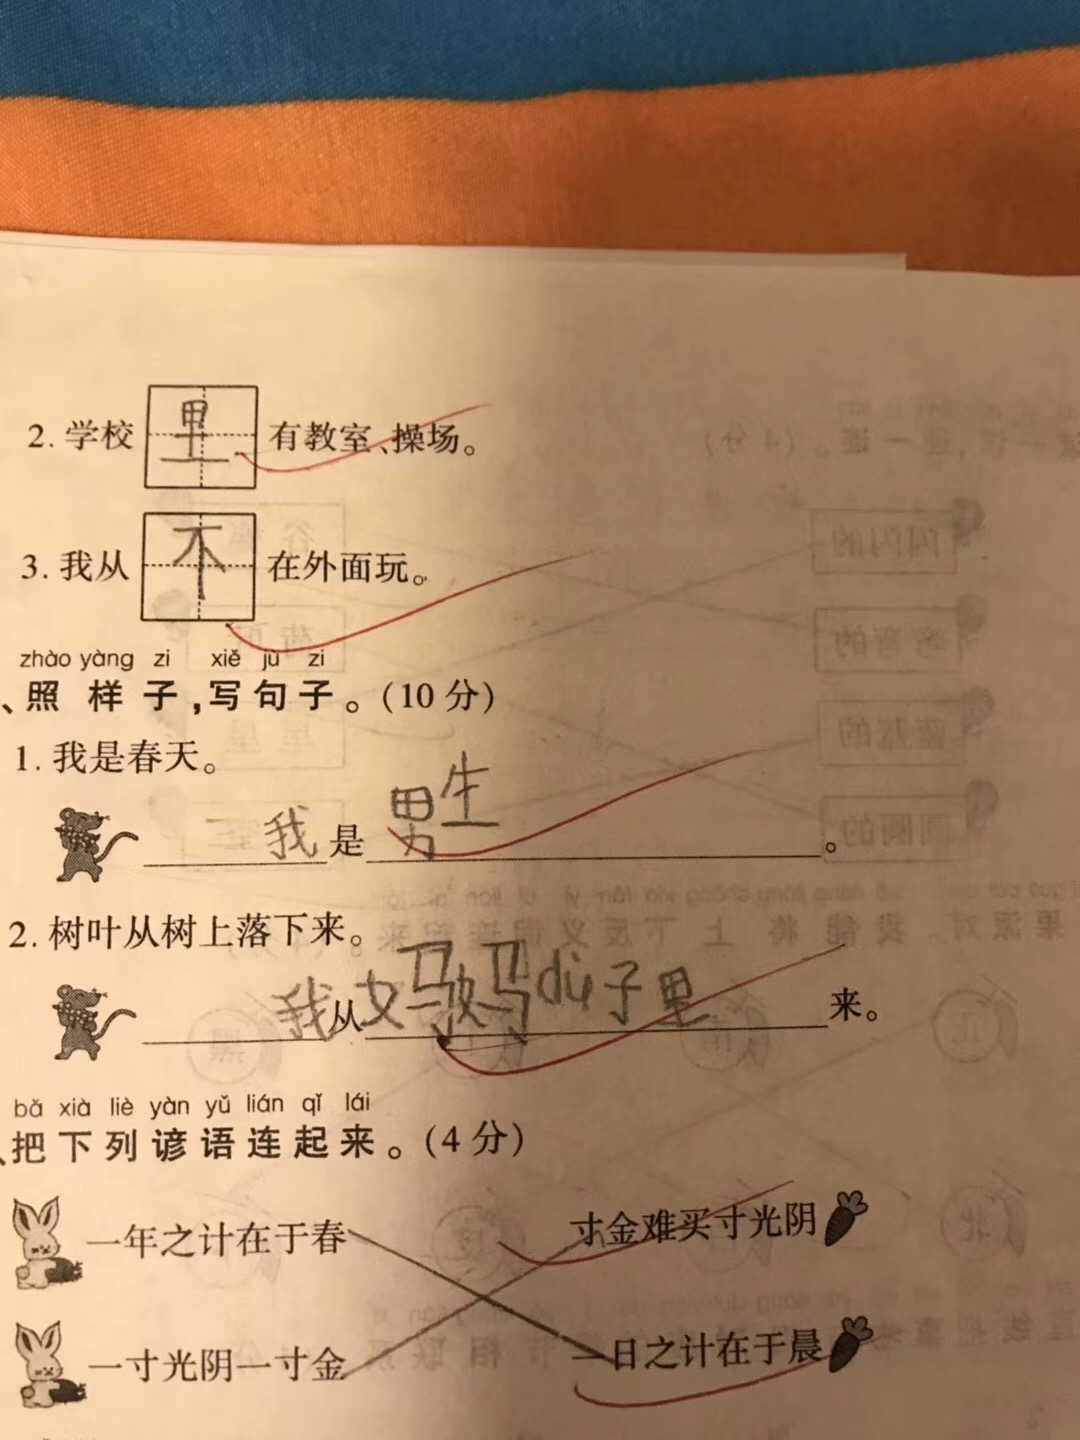 2. 学校里有教室、操场。
3. 我从不在外面玩。
zhào yàng zi xiě jù zi
、照样子,写句子。(10分)
1. 我是春天。
我是男生。
2. 树叶从树上落下来。
我从妈妈dù子里来。
bǎ xià liè yàn yǔ lián qǐ lái
、把下列谚语连起来。(4分)
一年之计在于春 寸金难买寸光阴
一寸光阴一寸金 一日之计在于晨